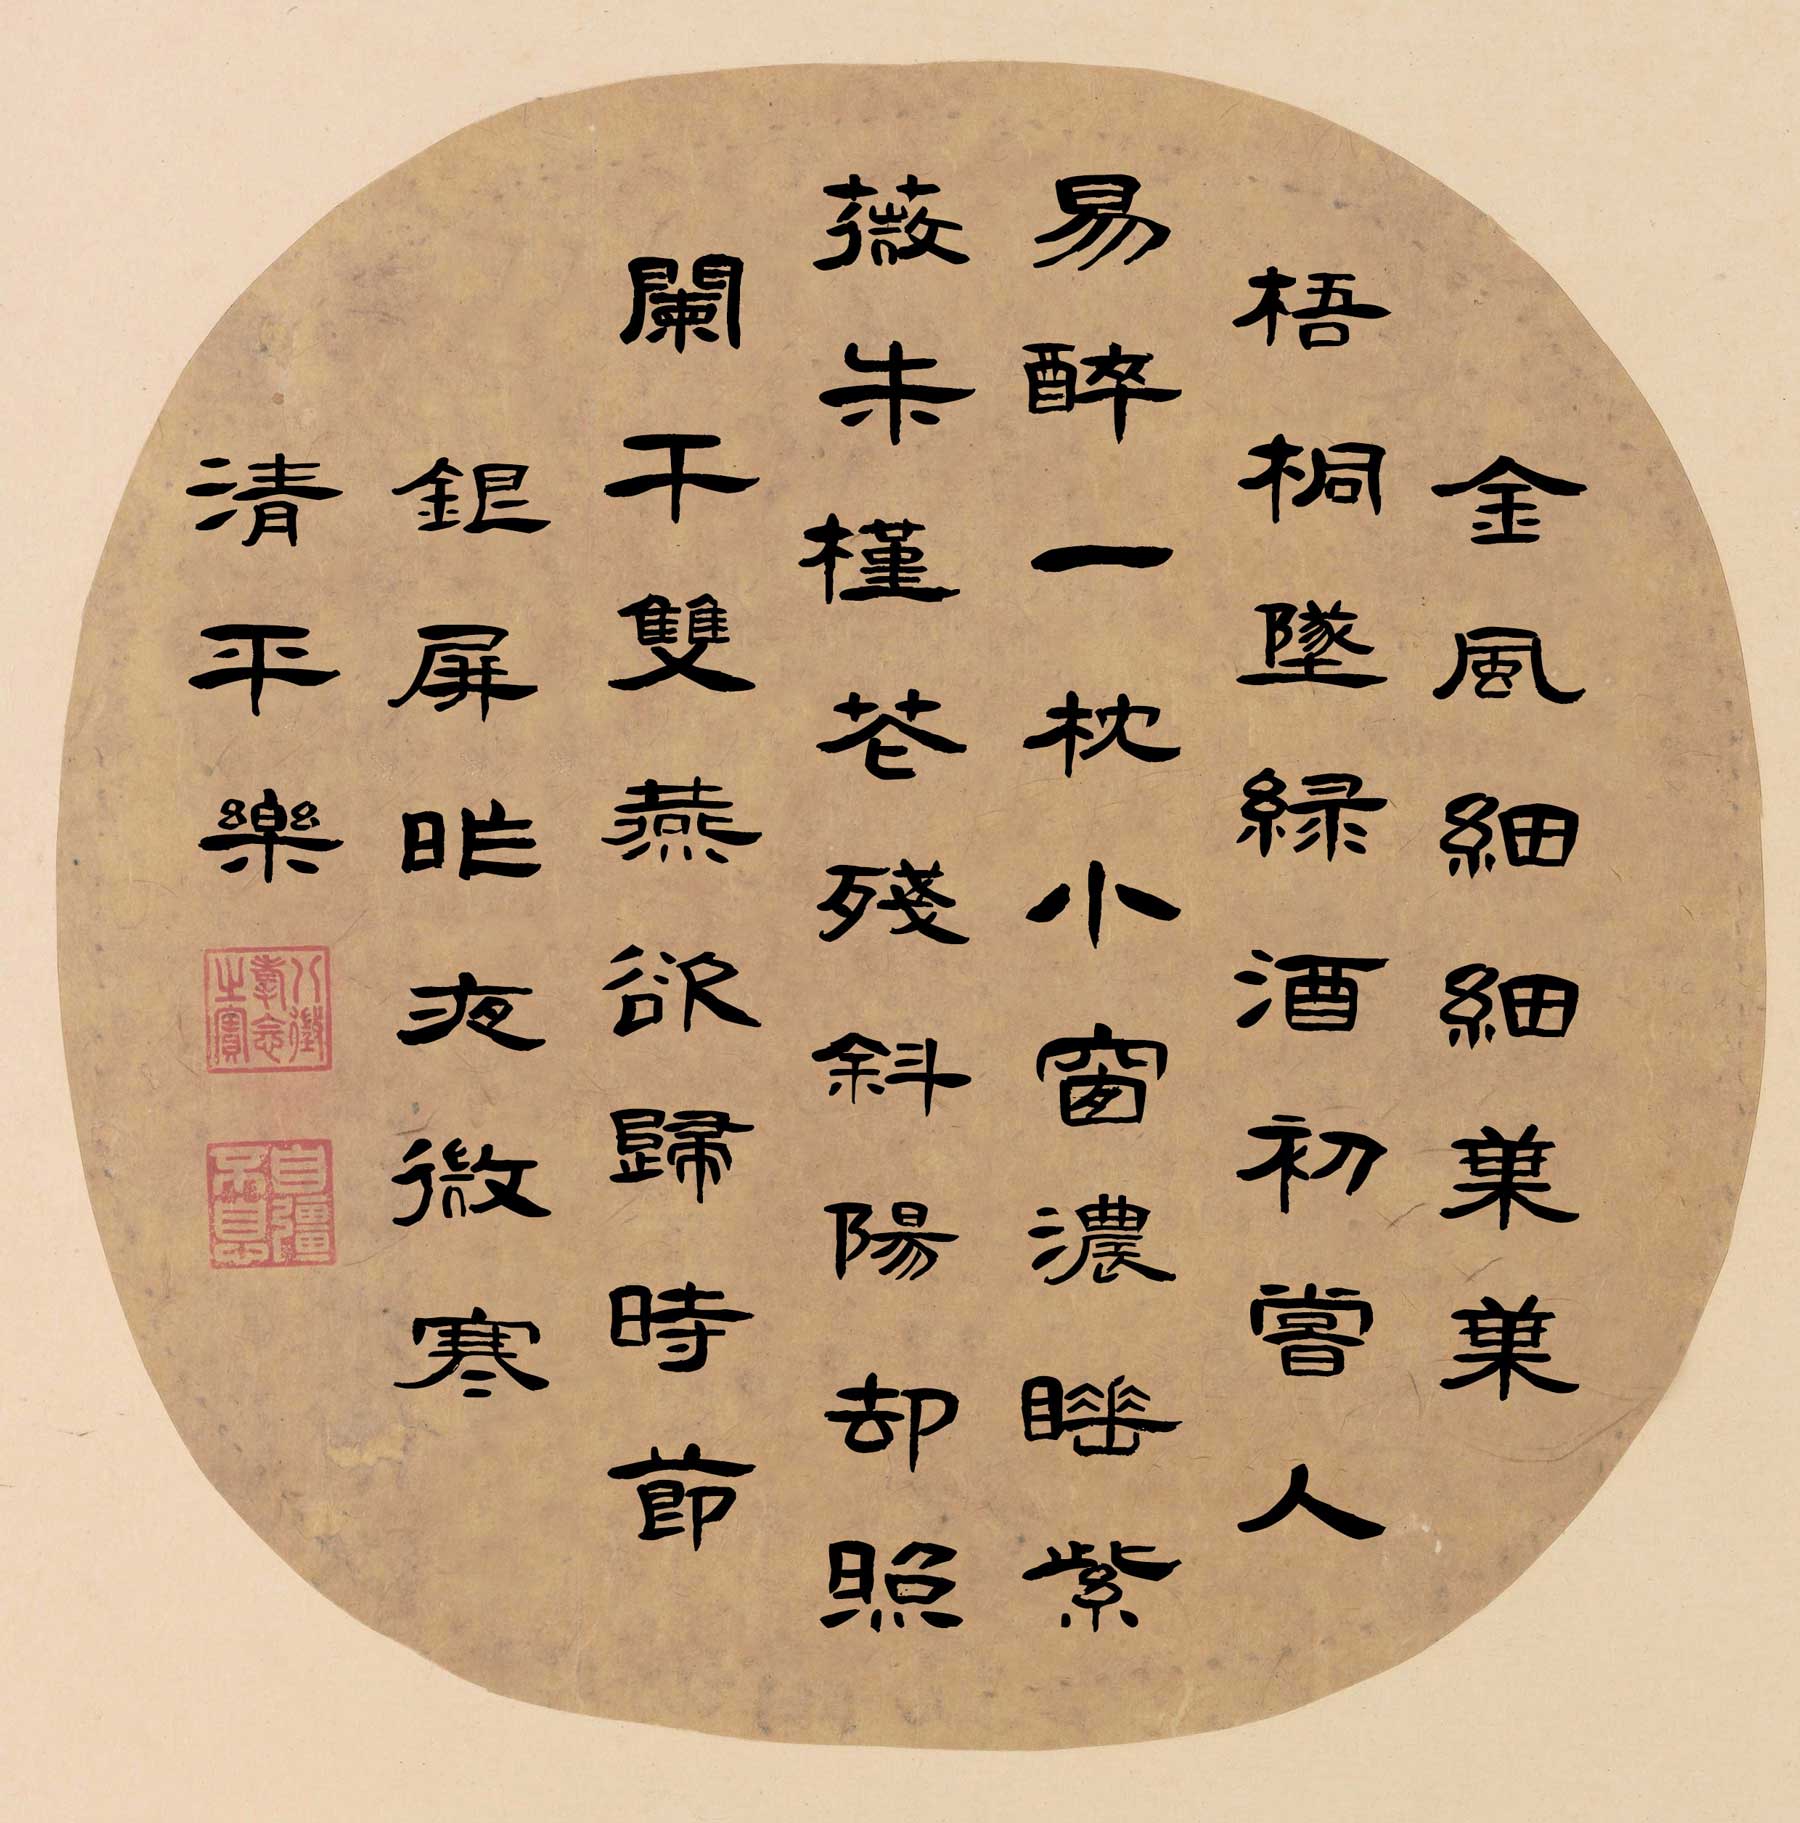 金風細細葉葉
梧桐墜緑酒初嘗人
易醉一枕小窗濃睡紫
薇朱槿花殘斜陽却照
闌干雙燕欲歸時節
銀屏昨夜微寒
清平樂
八徵耄念之寶
自彊不息